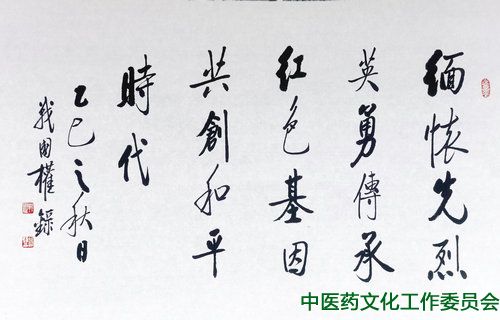 缅懷先烈
英勇傳承
红色基因
共創和平
時代
乙巳之秋日
戰国權錄
中医药文化工作委员会